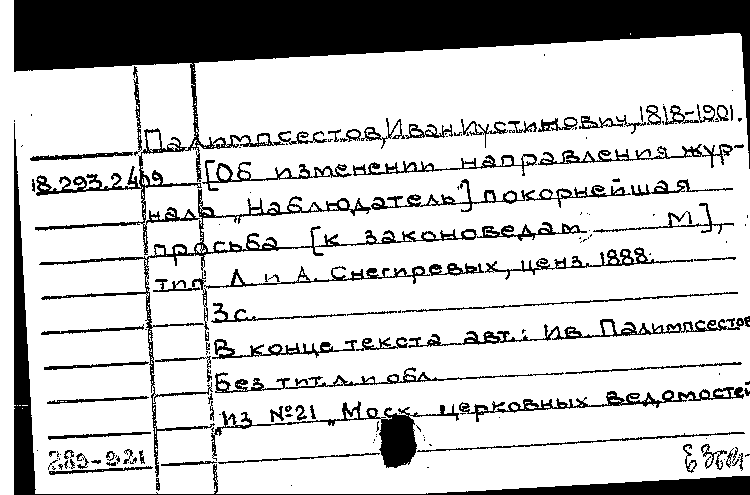 Палимпсестов, Иван Иустинович, 1818-1901.
18.293.2.409 [Об изменении направления жур-
нала „Наблюдатель"] покорнейшая
просьба [к законоведам М.],
тип Л и А. Снегиревых, ценз. 1888.
3с.
В конце текста авт.: Ив. Палимпсестов
Без тит. л. и обл.
Из №21 „Моск. церковных ведомостей
289-821